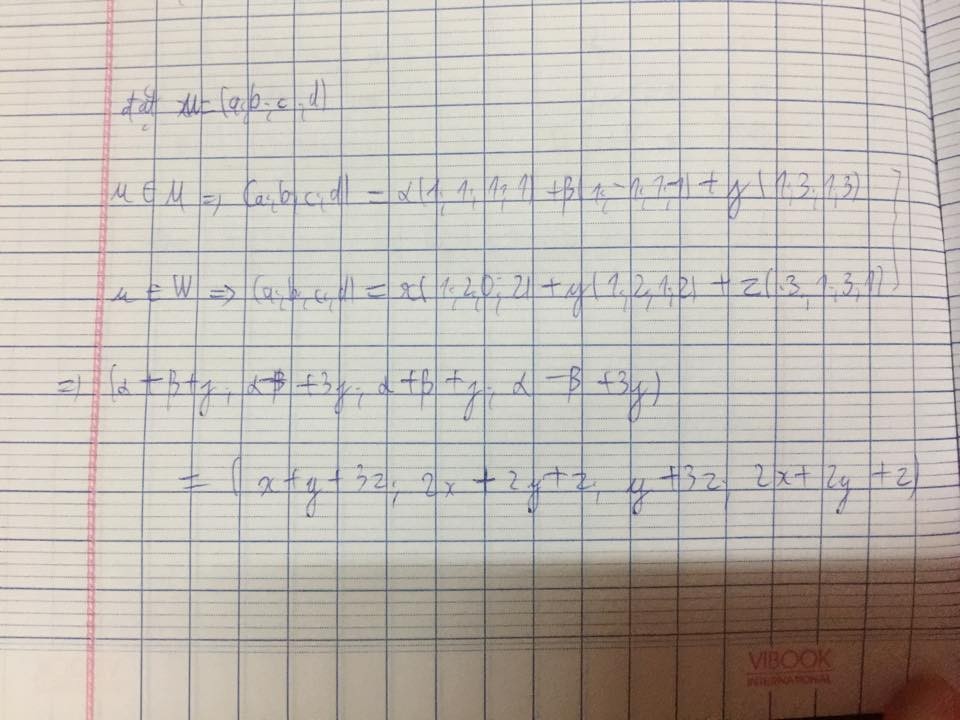 đặt u = (a; b; c; d)
u ∈ U => (a; b; c; d) = α(1; 1; 1; 1) + β(1; -1; 1; -1) + y(1; 3; 1; 3)
u ∈ W => (a; b; c; d) = x(1; 2; 0; 2) + y(1; 2; 1; 2) + z(3; 1; 3; 1)
=> (α + β + y; α - β + 3y; α + β + y; α - β + 3y)
= (x + y + 3z; 2x + 2y + z; y + 3z; 2x + 2y + z)
VIBOOK
INTERNATIONAL